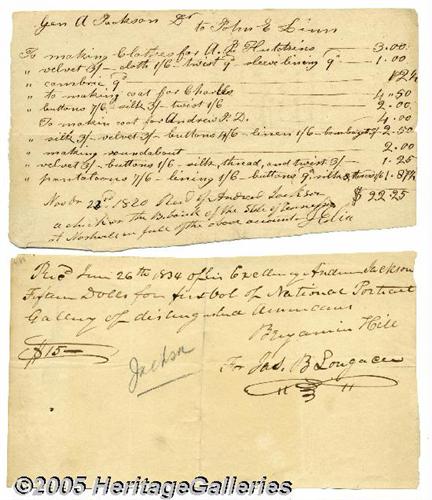 Gen A Jackson Dr to John E Linn
To making Clothes for A. Hutchins — 3.00
" velvet 3/ – cloth 1/6 – twist 9d – sleeve lining 9d – 1.00
" cambric 9d – 12½
" to making coat for Charles 4.50
" buttons 7/6 – silk 3/ twist 1/6 2.00
To makin coat for Andrew J. D. 4.00
" silk 3/ – velvet 3/ – buttons 4/6 – linen 1/6 – 2.50
" making roundabout 2.00
" velvet 3/ – buttons 1/6 – silk, thread, and twist 3/ – 1.25
" pantaloons 7/6 – lining 1/6 – buttons 9d silk & 1.87½
$22.25
Novbr 22nd 1820 Recd of Andrew Jackson
a check on the Bank of the State of Tennessee
at Nashville in full of the above account
Recd June 26th 1834 of his Excellency Andrew Jackson
Fifteen Dolls for first vol of National Portrait
Gallery of distinguished Americans
Benjamin Hill
$15—
For Jas. B Longacre
Jackson
©2005 HeritageGalleries